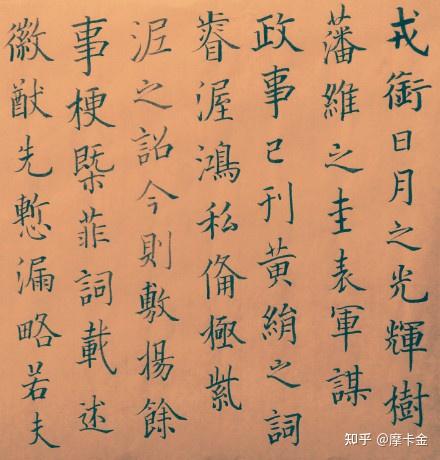 戎銜日月之光輝樹
藩維之圭表軍謀
政事已刊黃絹之詞
睿渥鴻私俻極紫
泥之詔今則敷揚餘
事梗槩菲詞載述
徽猷先慙漏略若夫
知乎 @摩卡金